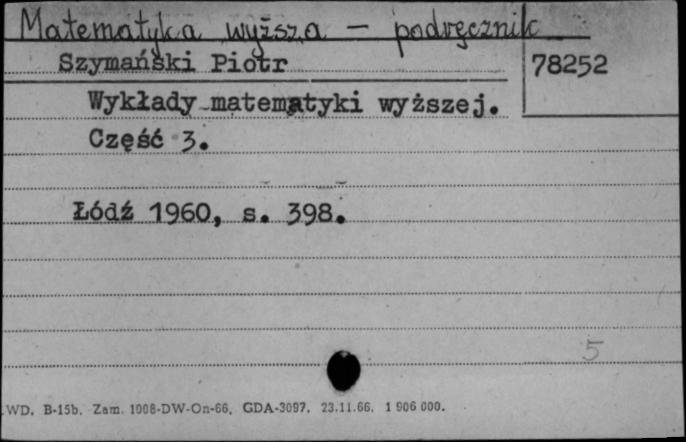 Matematyka wyższa - podręcznik
Szymański Piotr
78252
Wykłady matematyki wyższej.
Część 3.
Łódź 1960, s. 398.
5
WD. B-15b. Zam. 1008-DW-On-66. GDA-3097. 23.11.66. 1 906 000.